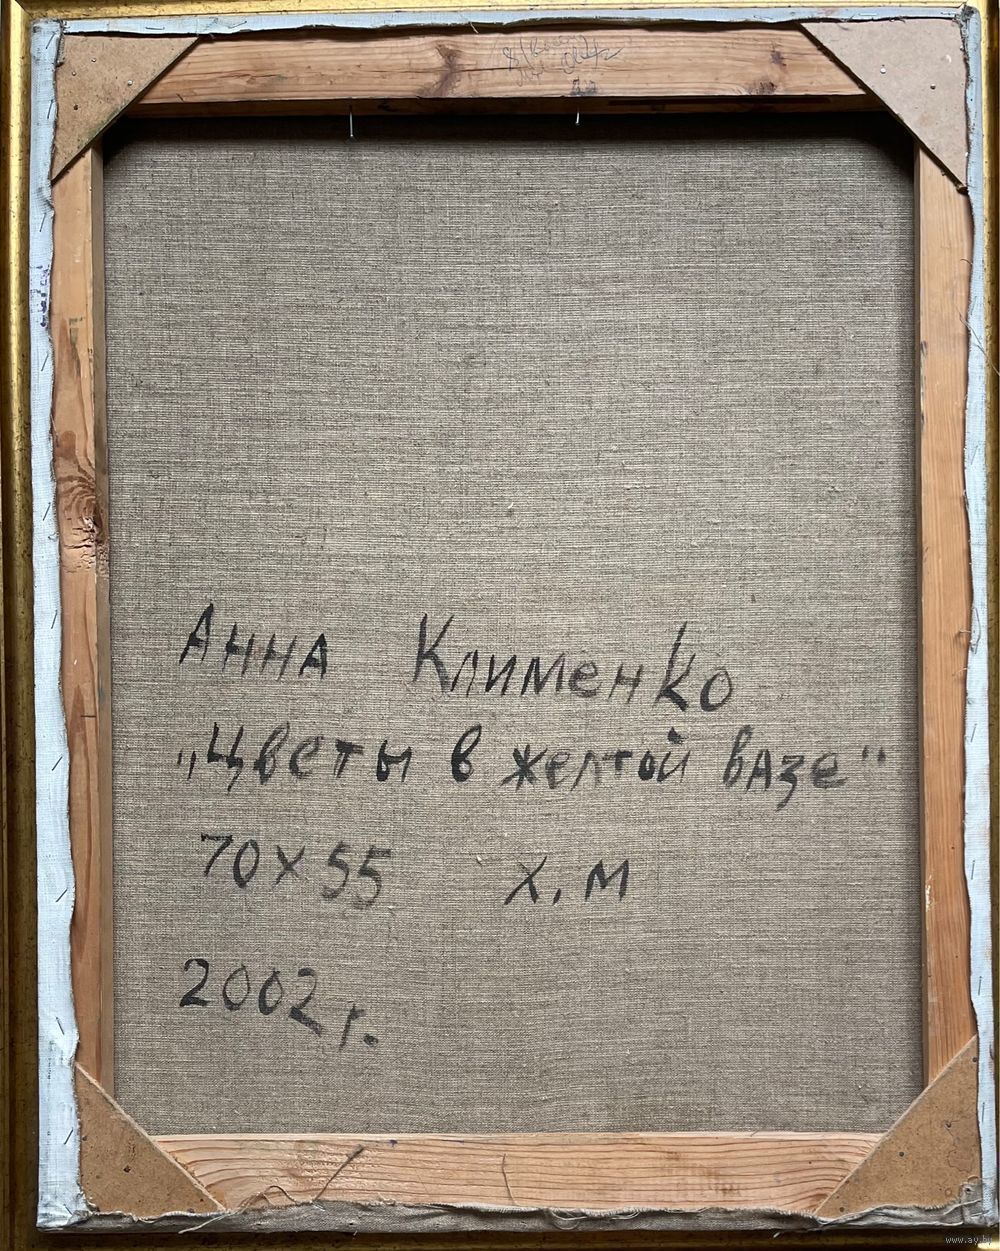 Анна Клименко
„Цветы в желтой вазе"
70х55 х.м
2002 г.
www.ay.by